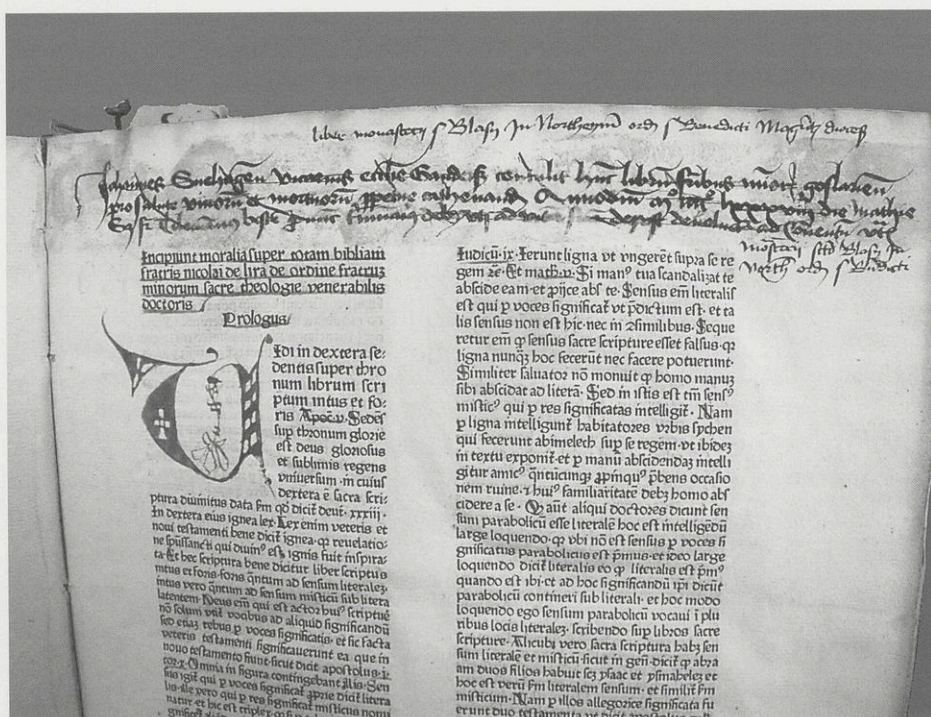 liber monasterij s Blasij In Northeym ord s Benedicti
Johannes
pro salute vivorum et mortuorum
Incipiunt moralia super totam bibliam
fratris nicolai de lira de ordine fratruʒ
minorum sacre theologie venerabilis
doctoris
Prologus
Uidi in dextera se⸗
dentis super thro
num librum scri
ptum intus et fo⸗
ris Apoc̄.v. Sedes
sup thronum glorie
est deus gloriosus
et sublimis regens
vniuersum·in cuius
dextera ē sacra scri⸗
ptura diuinitus data s̄m qd̄ dicit̄ deut̄. xxxiij·
In dextera eius ignea lex· Lex enim veteris et
noui testamenti bene dicit̄ ignea·qꝛ reuelatio⸗
ne spūssancti qui diuin⁹ est ignis fuit inspira⸗
ta· Et hec scriptura bene dicitur liber scriptus
intus et foris·foris q̄ntum ad sensum literaleʒ·
intus vero q̄ntum ad sensum misticū sub litera
latentem· Deus em̄ qui est actor hui⁹ scripture
nō solum vtit̄ vocibus ad aliquid significandū
sed etiaʒ rebus ꝑ voces significatis· et sic facta
veteris testamenti significauerunt ea que in
nouo testamento fiunt·sicut dicit apostolus·i·
cor·x· Omnia in figura contingebant illis· Sen
sus igit̄ qui ꝑ voces significat̄ ꝓprie dicit̄ litera
lis·ille vero qui ꝑ res significat̄ misticus nomi
natur·et hic est triplex·
Iudicū·ix· Ierunt ligna vt vngerēt supra se re
gem ⁊c̄· Et math·v· Si man⁹ tua scandaliʒat te
abscide eam·et ꝓijce abs te· Sensus em̄ literalis
est qui ꝑ voces significat̄ vt p̄dictum est· et ta
lis sensus non est hic·nec in ꝯsimilibus· Seque
retur em̄ ꝙ sensus sacre scripture esset falsus·qꝛ
ligna nunqʒ hoc fecerūt nec facere potuerunt·
Similiter saluator nō monuit ꝙ homo manuʒ
sibi abscidat ad literā· Sed in istis est tm̄ sens⁹
mistic⁹ qui ꝑ res significatas intelligit̄· Nam
ꝑ ligna intelligunt̄ habitatores vrbis sychen
qui fecerunt abimelech sup se regem·vt ibideʒ
in textu exponit̄·et ꝑ manū abscidendaʒ intelli
gitur amic⁹ q̄ntūcunqʒ ꝓpinqu⁹ p̄bens occasio
nem ruine·⁊ hui⁹ familiaritatē debʒ homo abs
cidere a se· Qꝛ aūt aliqui doctores dicunt sen
sum parabolicū esse literalē hoc est intelligēdū
large loquendo·qꝛ vbi nō est sensus ꝑ voces si
gnificatus parabolicus est p̄mus·et ideo large
loquendo dicit̄ literalis eo ꝙ literalis est p̄m⁹
quando est ibi·et ad hoc significandū ip̄i dicūt
parabolicū contineri sub literali· et hoc modo
loquendo ego sensum parabolicū vocaui ī plu
ribus locis literaleʒ· scribendo sup libros sacre
scripture· Alicubi vero sacra scriptura habʒ sen
sum literalē et misticū·sicut in gen̄·dicit̄ ꝙ abra
am duos filios habuit scʒ ysaac et ysmahelem·et
hoc est verū s̄m literalem sensum· et similit̄ s̄m
misticum· Nam ꝑ illos allegorice significata fu
erunt duo testamenta vt dicit apostolus